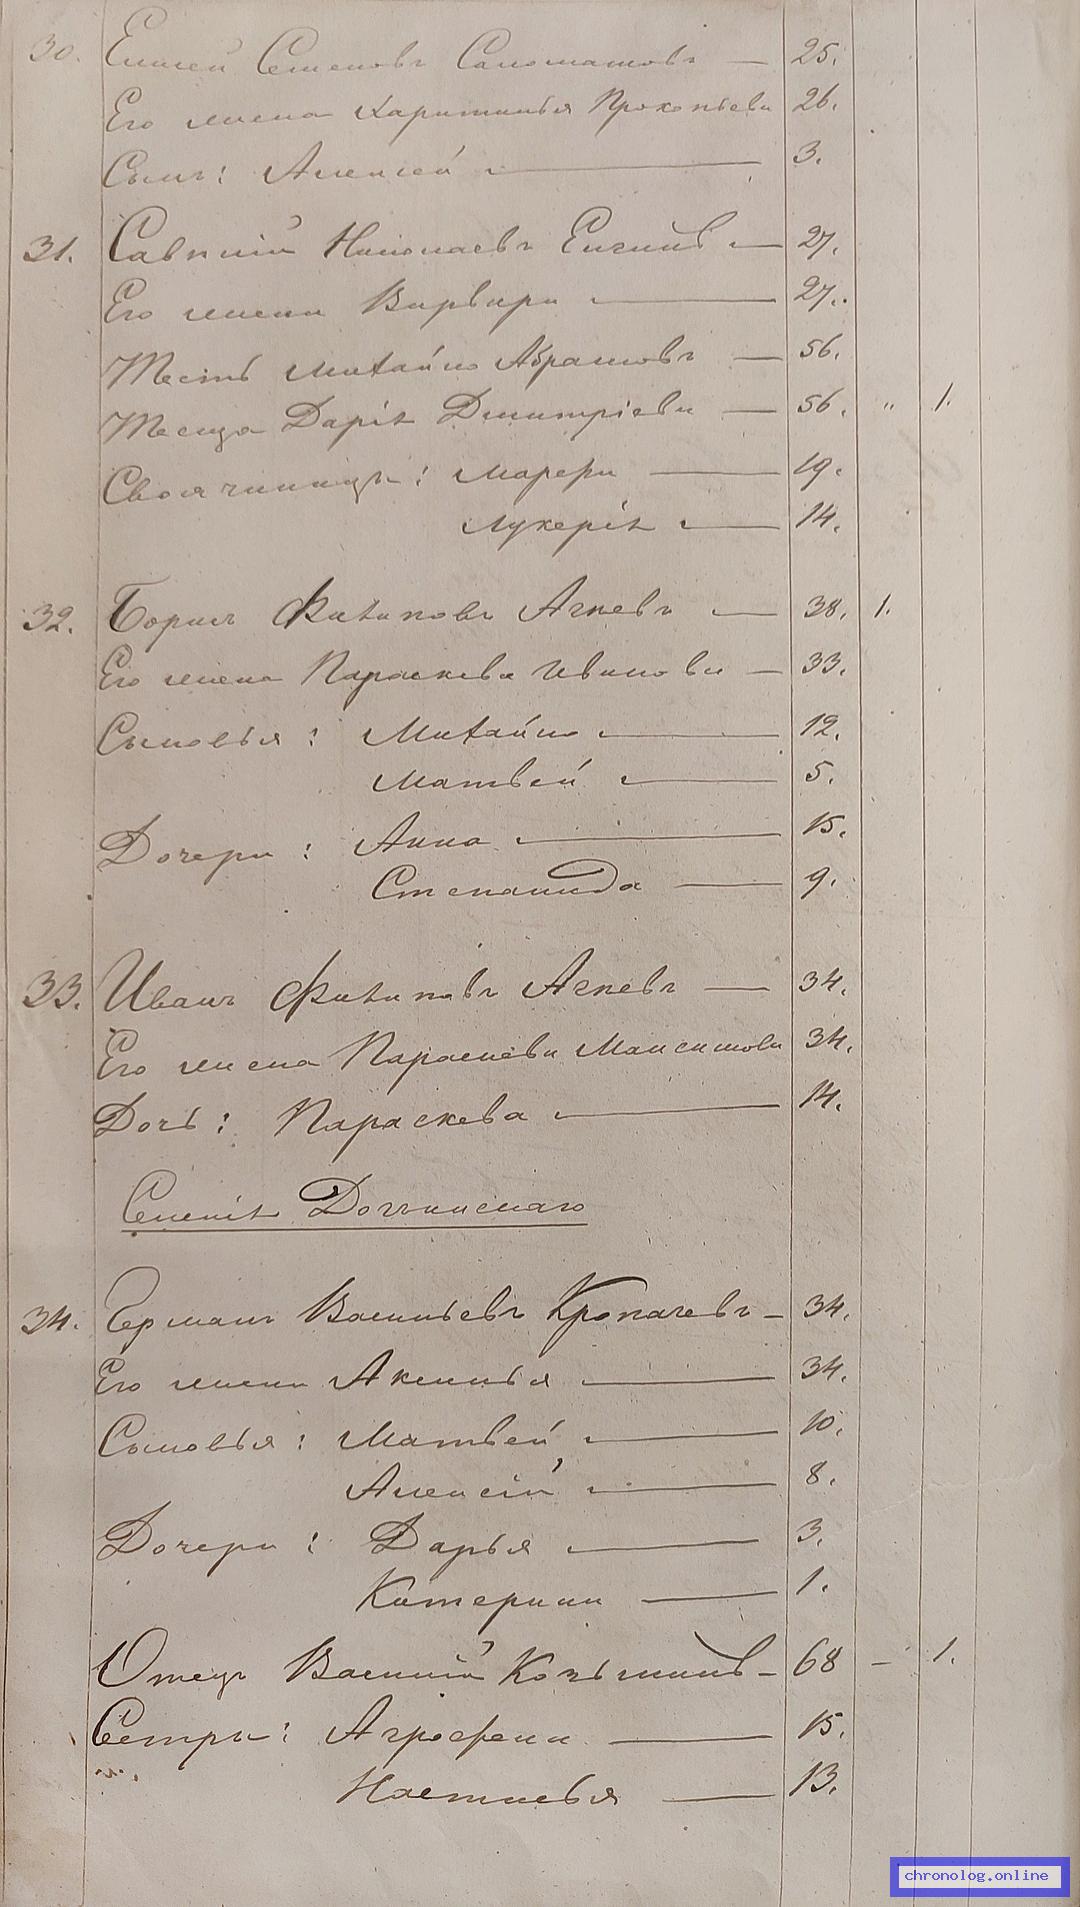 30. Елисей Семеновъ Саломатовъ — 25.
Его жена Харитинья Прокопьева 26.
Сынъ: Алексей — 3.
31. Савватій Николаевъ — 27.
Его жена Варвара — 27.
Тесть Михайло Абрамовъ — 56.
Теща Дарія Дмитріева — 56. „ 1.
Своячиницы: Марфа — 19.
Лукерія — 14.
32. Борисъ Филиповъ Агпевъ — 38. 1.
Его жена Параскева Иванова — 33.
Сыновья: Михайло — 12.
Матвей — 5.
Дочери: Анна — 15.
Степанида — 9.
33. Иванъ Филиповъ Агпевъ — 34.
Его жена Параскева Максимова 34.
Дочь: Параскева — 14.
Селенія
34. Германъ Васильевъ Кропачевъ — 34.
Его жена Аксинья — 34.
Сыновья: Матвей — 10.
Алексій — 8.
Дочери: Дарья — 3.
Катерина — 1.
Отецъ Василій Козьминъ — 68 — 1.
Сестры: Агрофена — 15.
Настасья — 13.
chronolog.online